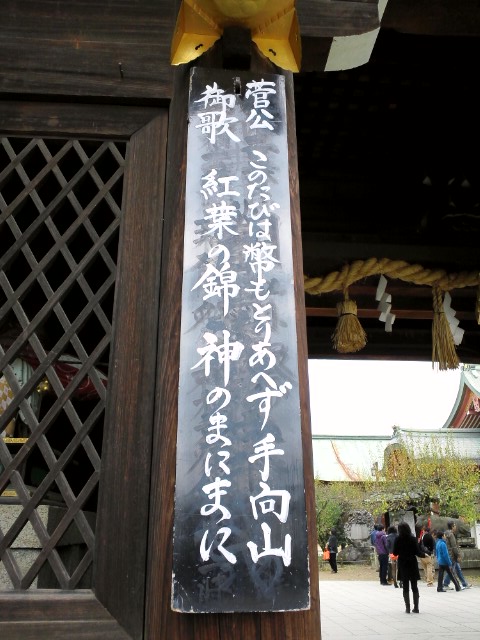 菅公 このたびは幣もとりあへず手向山
御歌 紅葉の錦 神のまにまに